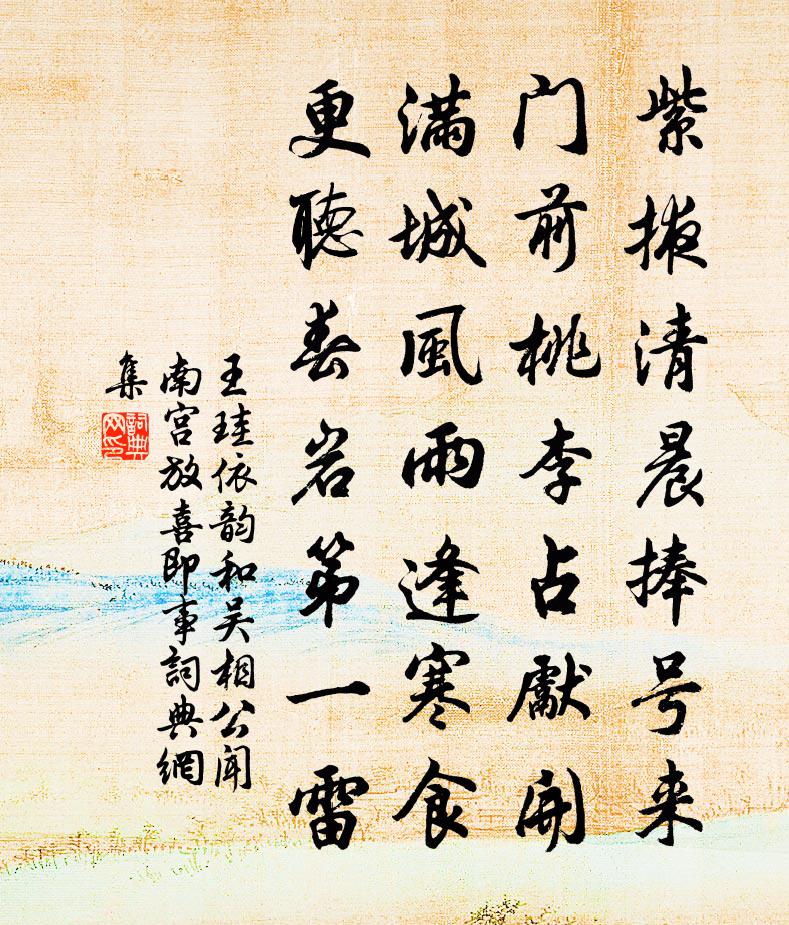 紫掖清晨捧号来
门前桃李占獻開
满城風雨逢寒食
更聽春岩第一雷
王珪依韵和吴相公闻
南宫放喜即事詞典網
集
詞典網印